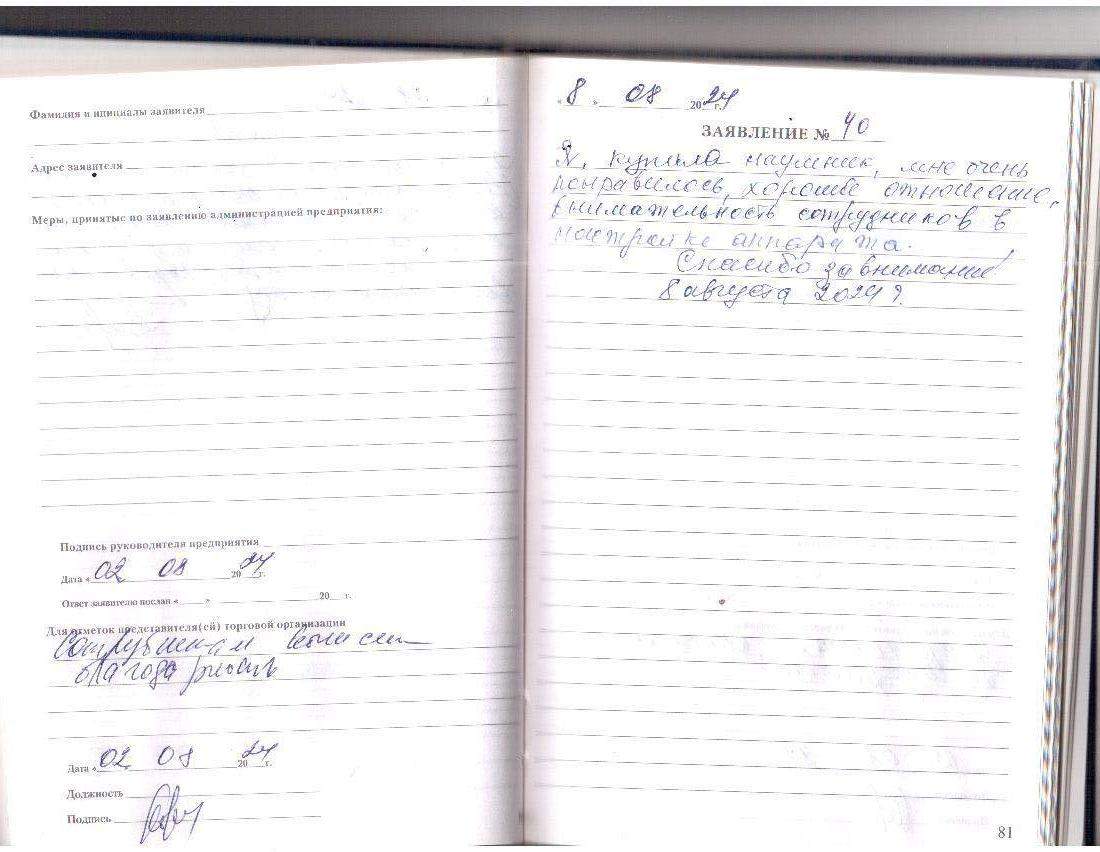 Фамилия и инициалы заявителя
Адрес заявителя
Меры, принятые по заявлению администрацией предприятия:
Подпись руководителя предприятия
Дата « 02 08 20 24 г.
Ответ заявителю послан « » 20 г.
Для отметок представителя(ей) торговой организации
Сотрудникам
благодарность
Дата « 02 08 20 24 г.
Должность
Подпись
« 8 » 08 20 24 г.
ЗАЯВЛЕНИЕ № 40
Я, купила наушник, мне очень
понравилось, хорошее отношение,
внимательность сотрудников в
настройке аппарата.
Спасибо за внимание!
8 августа 2024 г.
81